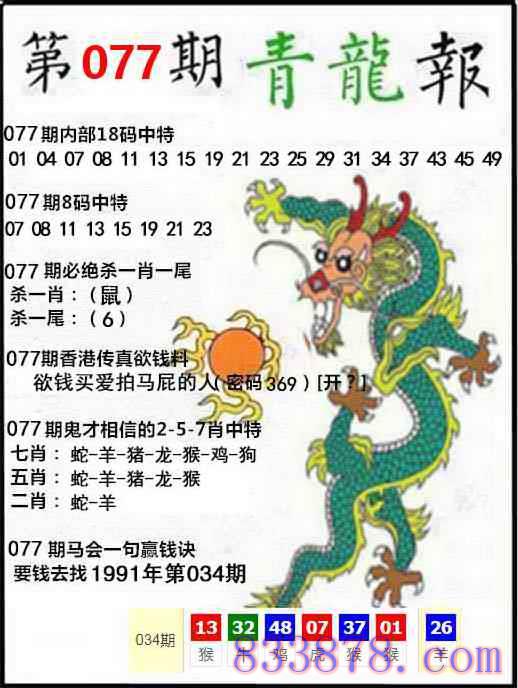 第077期青龍報
077期内部18码中特
01 04 07 08 11 13 15 19 21 23 25 29 31 34 37 43 45 49
077期8码中特
07 08 11 13 15 19 21 23
077期必绝杀一肖一尾
杀一肖：(鼠)
杀一尾：(6)
077期香港传真欲钱料
欲钱买爱拍马屁的人(密码369)[开?]
077期鬼才相信的2-5-7肖中特
七肖：蛇-羊-猪-龙-猴-鸡-狗
五肖：蛇-羊-猪-龙-猴
二肖：蛇-羊
077期马会一句赢钱诀
要钱去找1991年第034期
034期 13 32 48 07 37 01 26
猴 牛 鸡 虎 猴 猴 羊
833878.com